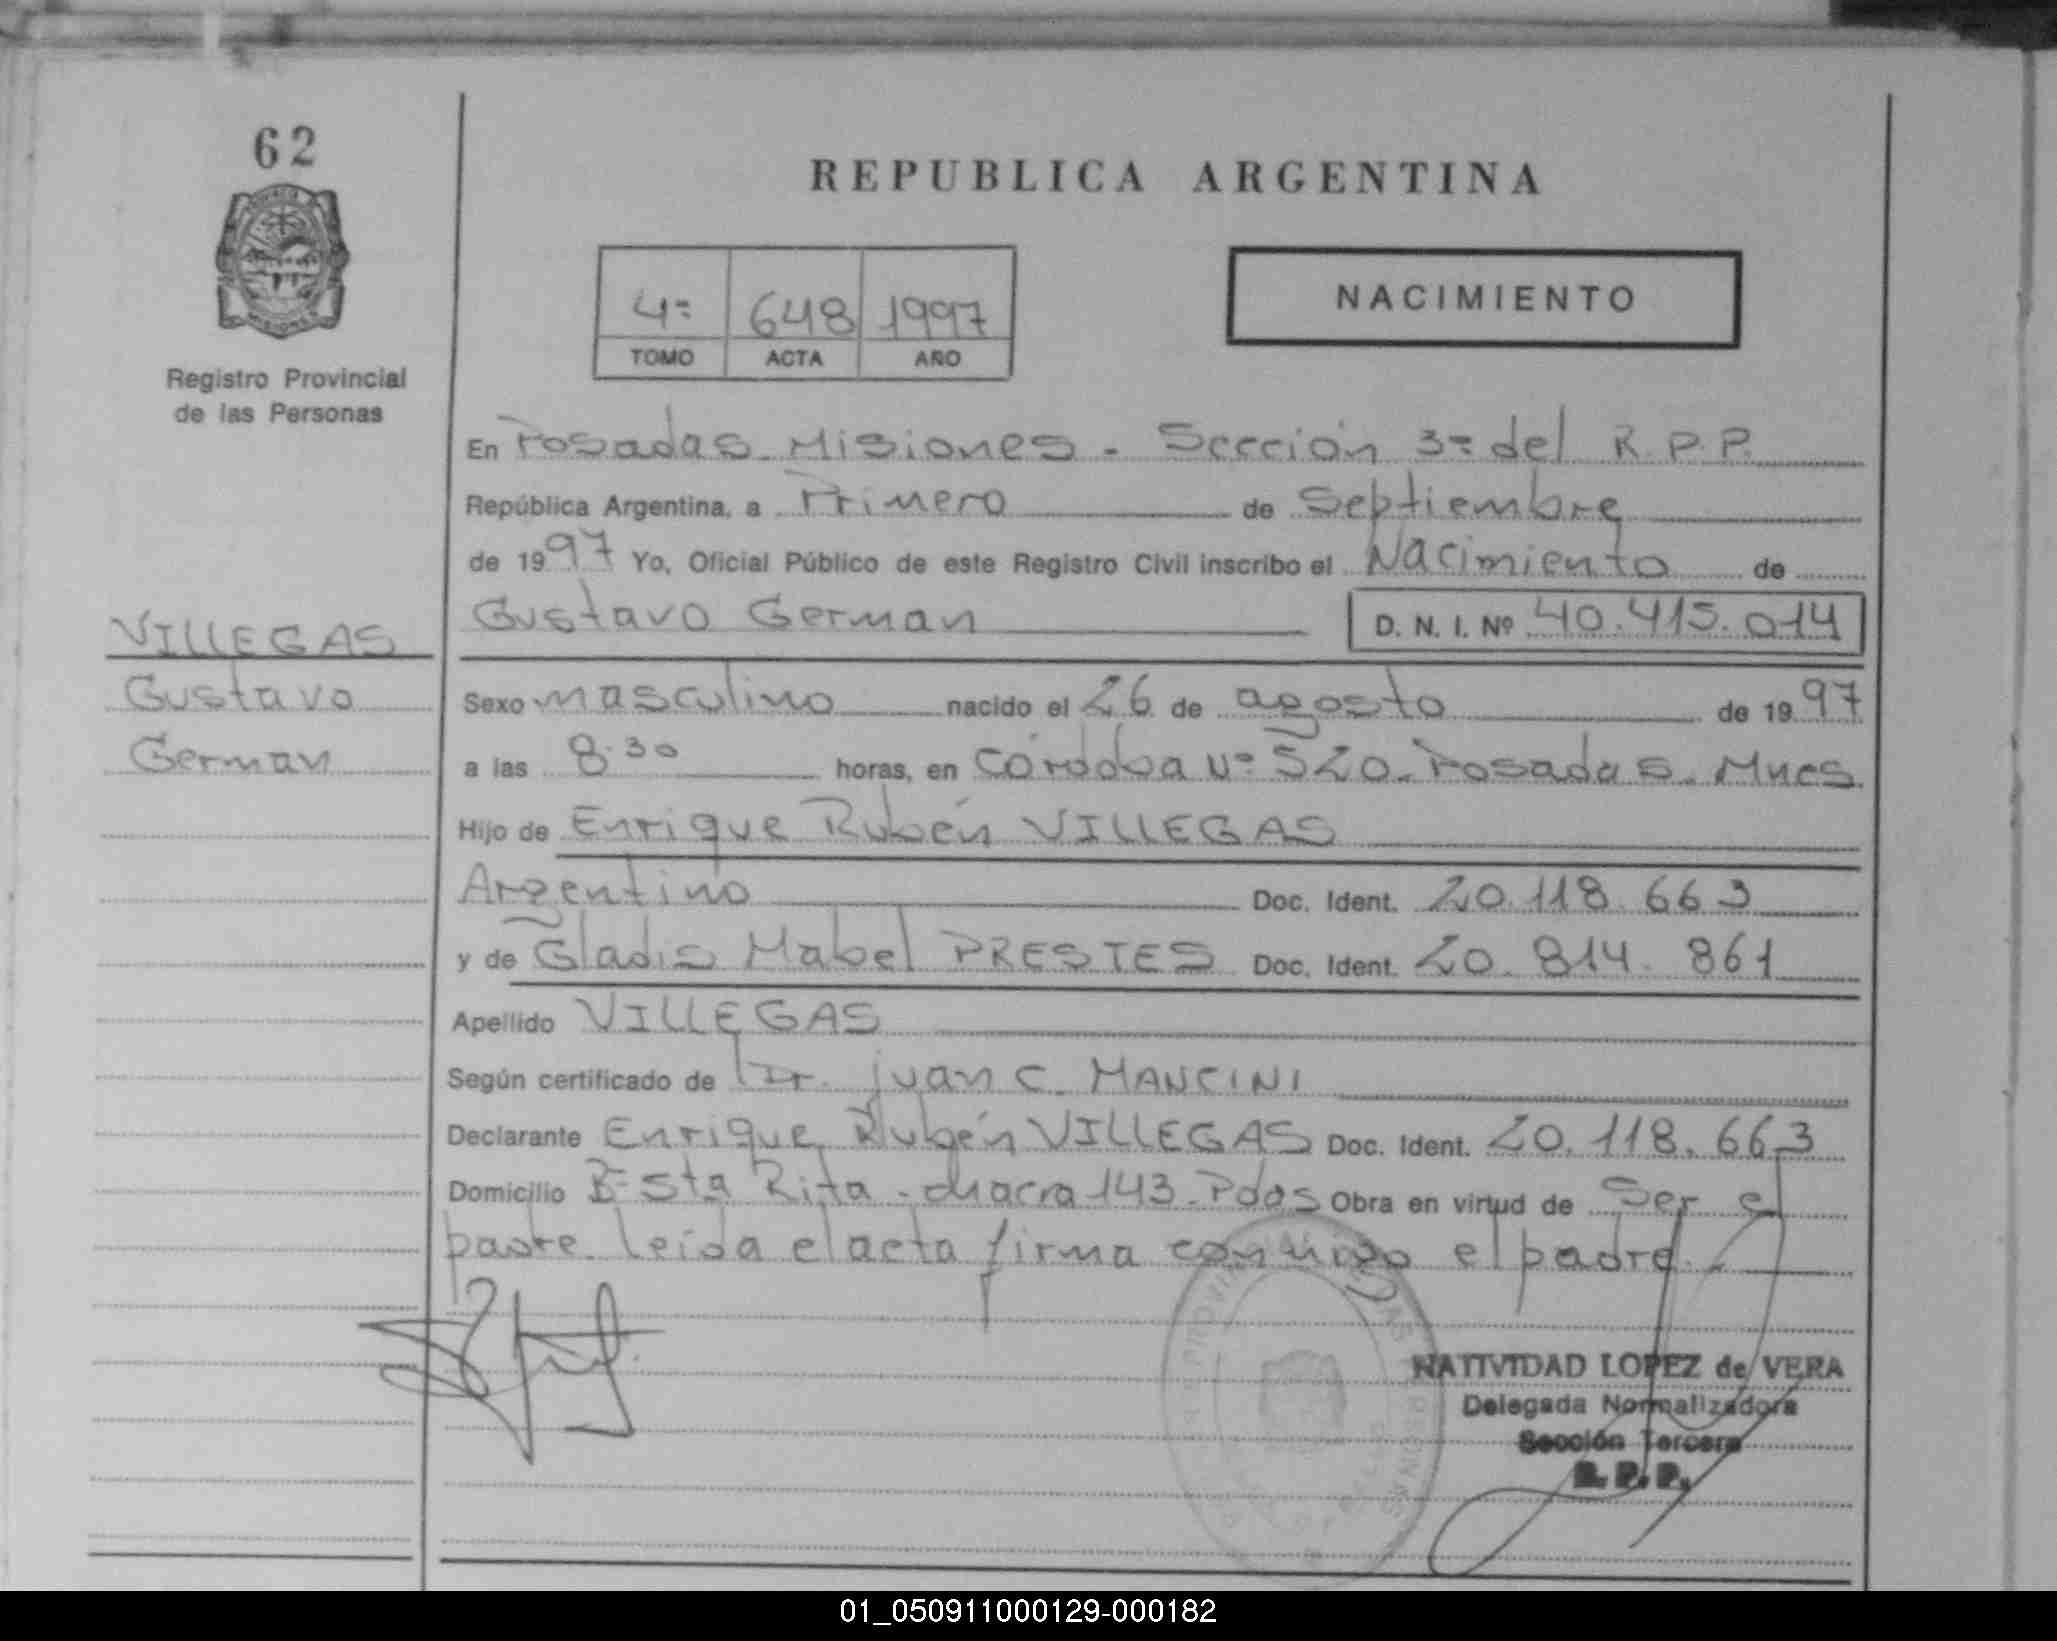 62
REPUBLICA ARGENTINA
4º 648 1997
TOMO ACTA AÑO
NACIMIENTO
Registro Provincial
de las Personas
En Posadas Misiones - Sección 3ª del R.P.P.
República Argentina, a Primero de Septiembre
de 1997 Yo, Oficial Público de este Registro Civil inscribo el Nacimiento de
Gustavo German D. N. I. Nº 40.415.014
VILLEGAS
Gustavo
German
Sexo masculino nacido el 26 de agosto de 1997
a las 8:30 horas, en Córdoba Nº 520. Posadas. Mnes
Hijo de Enrique Rubén VILLEGAS
Argentino Doc. Ident. 20.118.663
y de Gladis Mabel PRESTES Doc. Ident. 20.814.861
Apellido VILLEGAS
Según certificado de Dr. Juan C. MANCINI
Declarante Enrique Rubén VILLEGAS Doc. Ident. 20.118.663
Domicilio Bº Sta Rita - chacra 143 - Pdas Obra en virtud de Ser el
padre. leida el acta firma conmigo el padre.-
NATIVIDAD LOPEZ de VERA
Delegada Normalizadora
Sección Tercera
R.P.P.
01_050911000129-000182